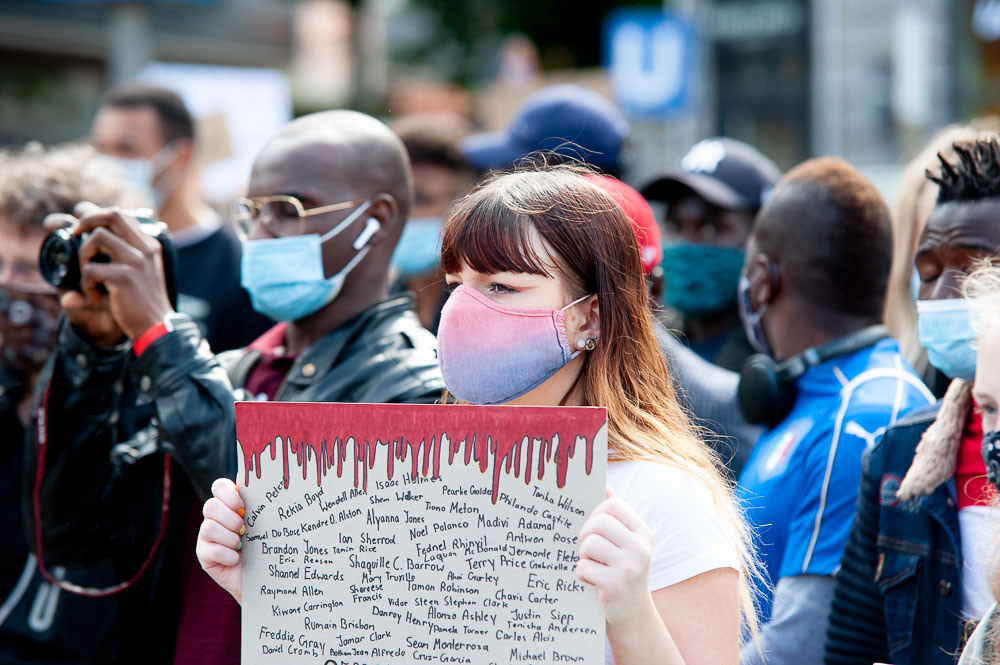 U
Calvin Peters
Rekia Boyd
Wendell Allen
Isaac Holmes
Shem Walker
Pearlie Golden
Tanika Wilson
Samuel Du Bose
Kendre O. Alston
Tiono Meton
Philando Castile
Alyanna Jones
Ian Sherrod
Noel Polanco
Madivi Adamola
Antwon Rose
Brandon Jones
Tamir Rice
Fednel Rhinvil
Laquan McDonald
Jermonte Fletc
Eric Reason
Shaquille C. Barrow
Terry Price
Gabriella
Shannel Edwards
Mary Truxillo
Akai Gurley
Eric Ricks
Raymond Allen
Shereese Francis
Tamon Robinson
Chavis Carter
Kiwane Carrington
Vidar Steen
Stephen Clark
Justin Sipp
Rumain Brisbon
Danroy Henry
Alonzo Ashley
Tanisha Anderson
Pamela Turner
Carlos Alcis
Freddie Gray
Jamar Clark
Sean Monterrosa
David Cromby
Botham Jean
Alfredo Cruz-Garcia
Michael Brown